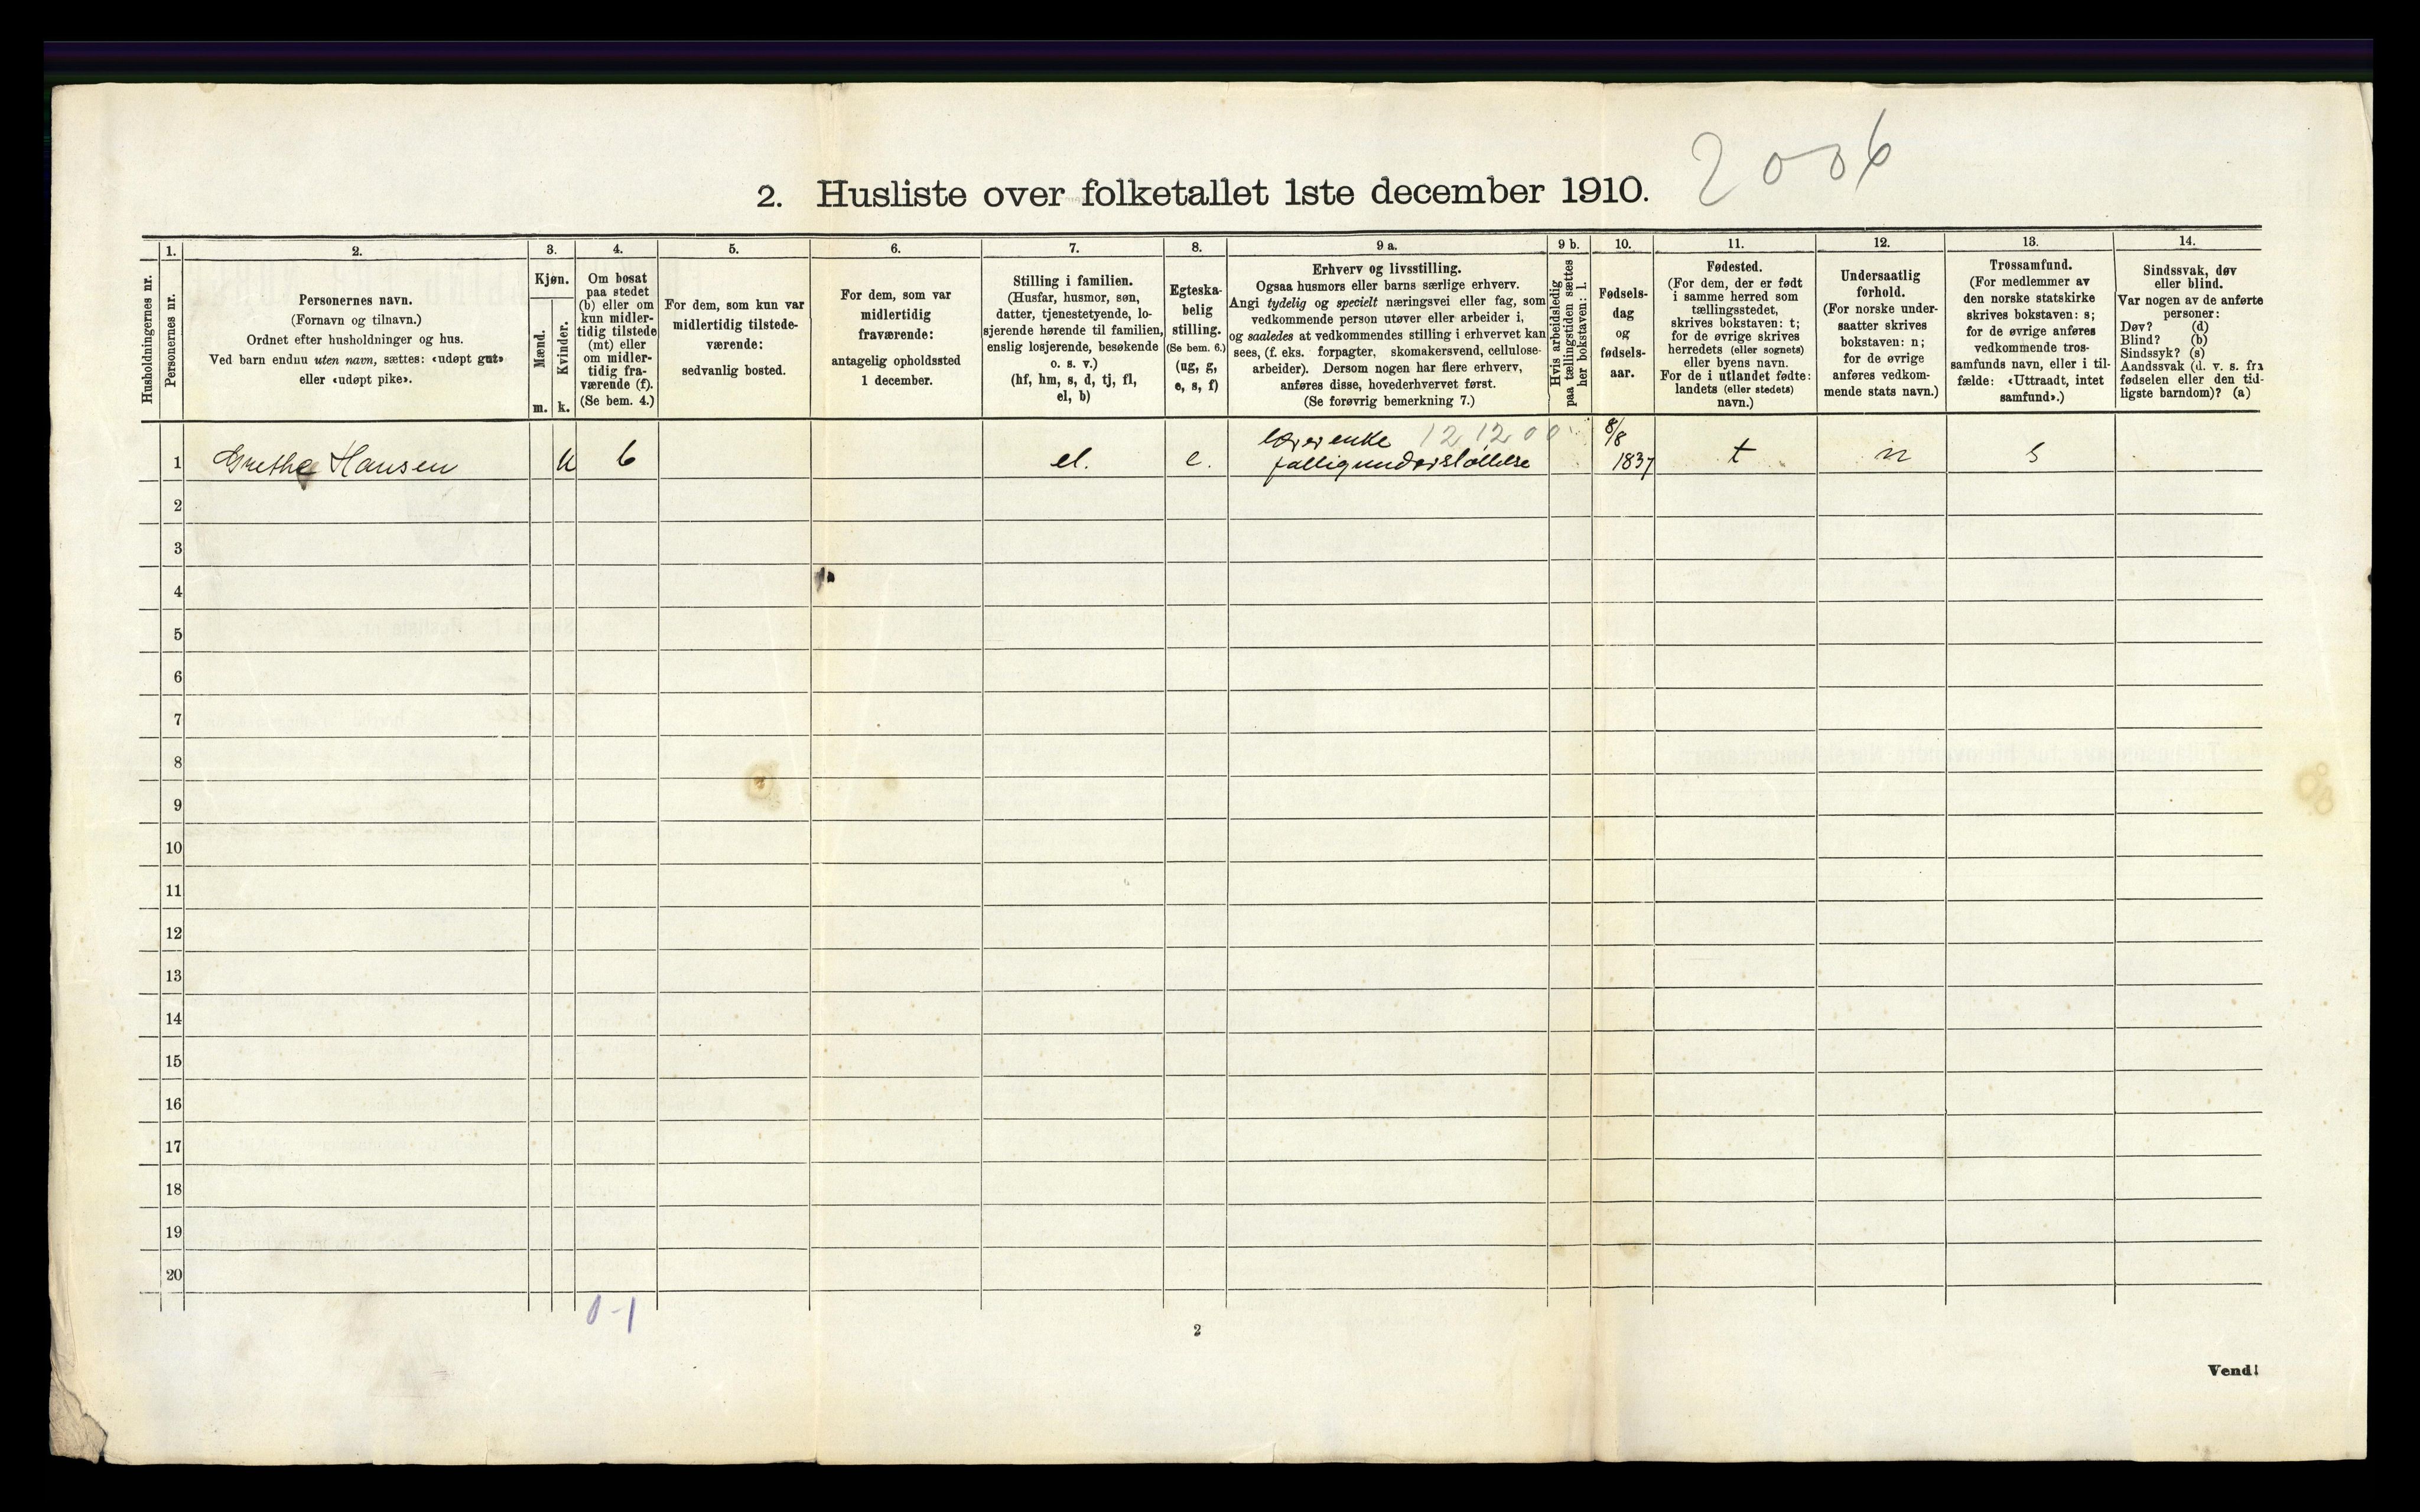 2006
2. Husliste over folketallet 1ste december 1910.
Husholdningernes nr.
1.
Personernes nr.
2.
Personernes navn.
(Fornavn og tilnavn.)
Ordnet efter husholdninger og hus.
Ved barn endnu uten navn, sættes: «udøpt gut»
eller «udøpt pike».
3.
Kjøn.
Mænd.
m.
Kvinder.
k.
4.
Om bosat
paa stedet
(b) eller om
kun midler-
tidig tilstede
(mt) eller
om midler-
tidig fra-
værende (f).
(Se bem. 4.)
5.
For dem, som kun var
midlertidig tilstede-
værende:
sedvanlig bosted.
6.
For dem, som var
midlertidig
fraværende:
antagelig opholdssted
1 december.
7.
Stilling i familien.
(Husfar, husmor, søn,
datter, tjenestetyende, lo-
sjerende hørende til familien,
enslig losjerende, besøkende
o. s. v.)
(hf, hm, s, d, tj, fl,
el, b)
8.
Egteska-
belig
stilling.
(Se bem. 6.)
(ug, g,
e, s, f)
9 a.
Erhverv og livsstilling.
Ogsaa husmors eller barns særlige erhverv.
Angi tydelig og specielt næringsvei eller fag, som
vedkommende person utøver eller arbeider i,
og saaledes at vedkommendes stilling i erhvervet kan
sees, (f. eks. forpagter, skomakersvend, cellulose-
arbeider). Dersom nogen har flere erhverv,
anføres disse, hovederhvervet først.
(Se forøvrig bemerkning 7.)
9 b.
Hvis arbeidsledig
paa tællingstiden sættes
her bokstaven: l.
10.
Fødsels-
dag
og
fødsels-
aar.
11.
Fødested.
(For dem, der er født
i samme herred som
tællingsstedet,
skrives bokstaven: t;
for de øvrige skrives
herredets (eller sognets)
eller byens navn.
For de i utlandet fødte:
landets (eller stedets)
navn.)
12.
Undersaatlig
forhold.
(For norske under-
saatter skrives
bokstaven: n;
for de øvrige
anføres vedkom-
mende stats navn.)
13.
Trossamfund.
(For medlemmer av
den norske statskirke
skrives bokstaven: s;
for de øvrige anføres
vedkommende tros-
samfunds navn, eller i til-
fælde: «Uttraadt, intet
samfund».)
14.
Sindssvak, døv
eller blind.
Var nogen av de anførte
personer:
Døv? (d)
Blind? (b)
Sindssyk? (s)
Aandssvak (d. v. s. fra
fødselen eller den tid-
ligste barndom)? (a)
lærerenke 121200 8/8
1 Grethe Hansen k b el. e. fattigunderstøttelse 1837 t n s
2
3
4
5
6
7
8
9
10
11
12
13
14
15
16
17
18
19
20
0-1
2
Vend!